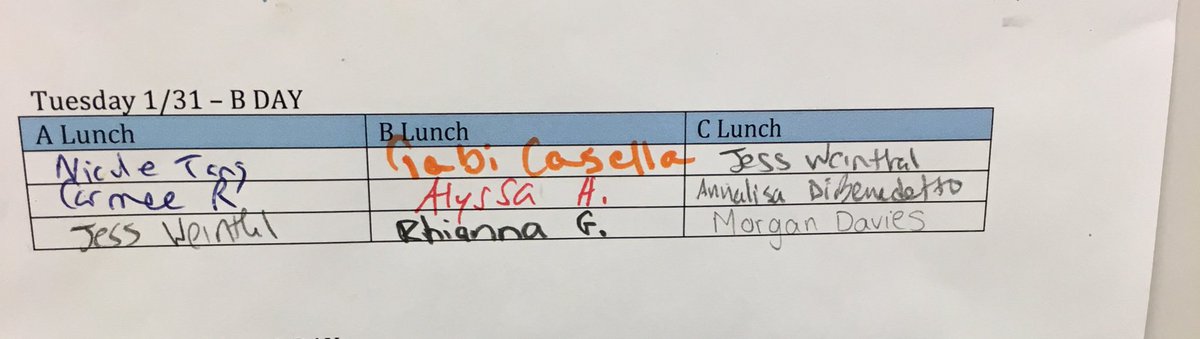 Tuesday 1/31 – B DAY
A Lunch B Lunch C Lunch
Nicole Tang Gabi Casella Jess Weinthal
Carmee R Alyssa H. Annalisa DiBenedetto
Jess Weinthl Rhianna G. Morgan Davies